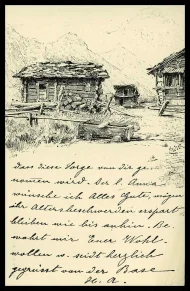 dass diese Sorge von dir ge-
nomen wird. Der l. Anna
wünsche ich Alles Gute, mögen
ihr Altersbeschwerden erspart
bleiben wie bis anhin. Be-
wahret mir Euer Wohl-
wollen u. seid herzlich
gegrüsst von der Base
H. A.